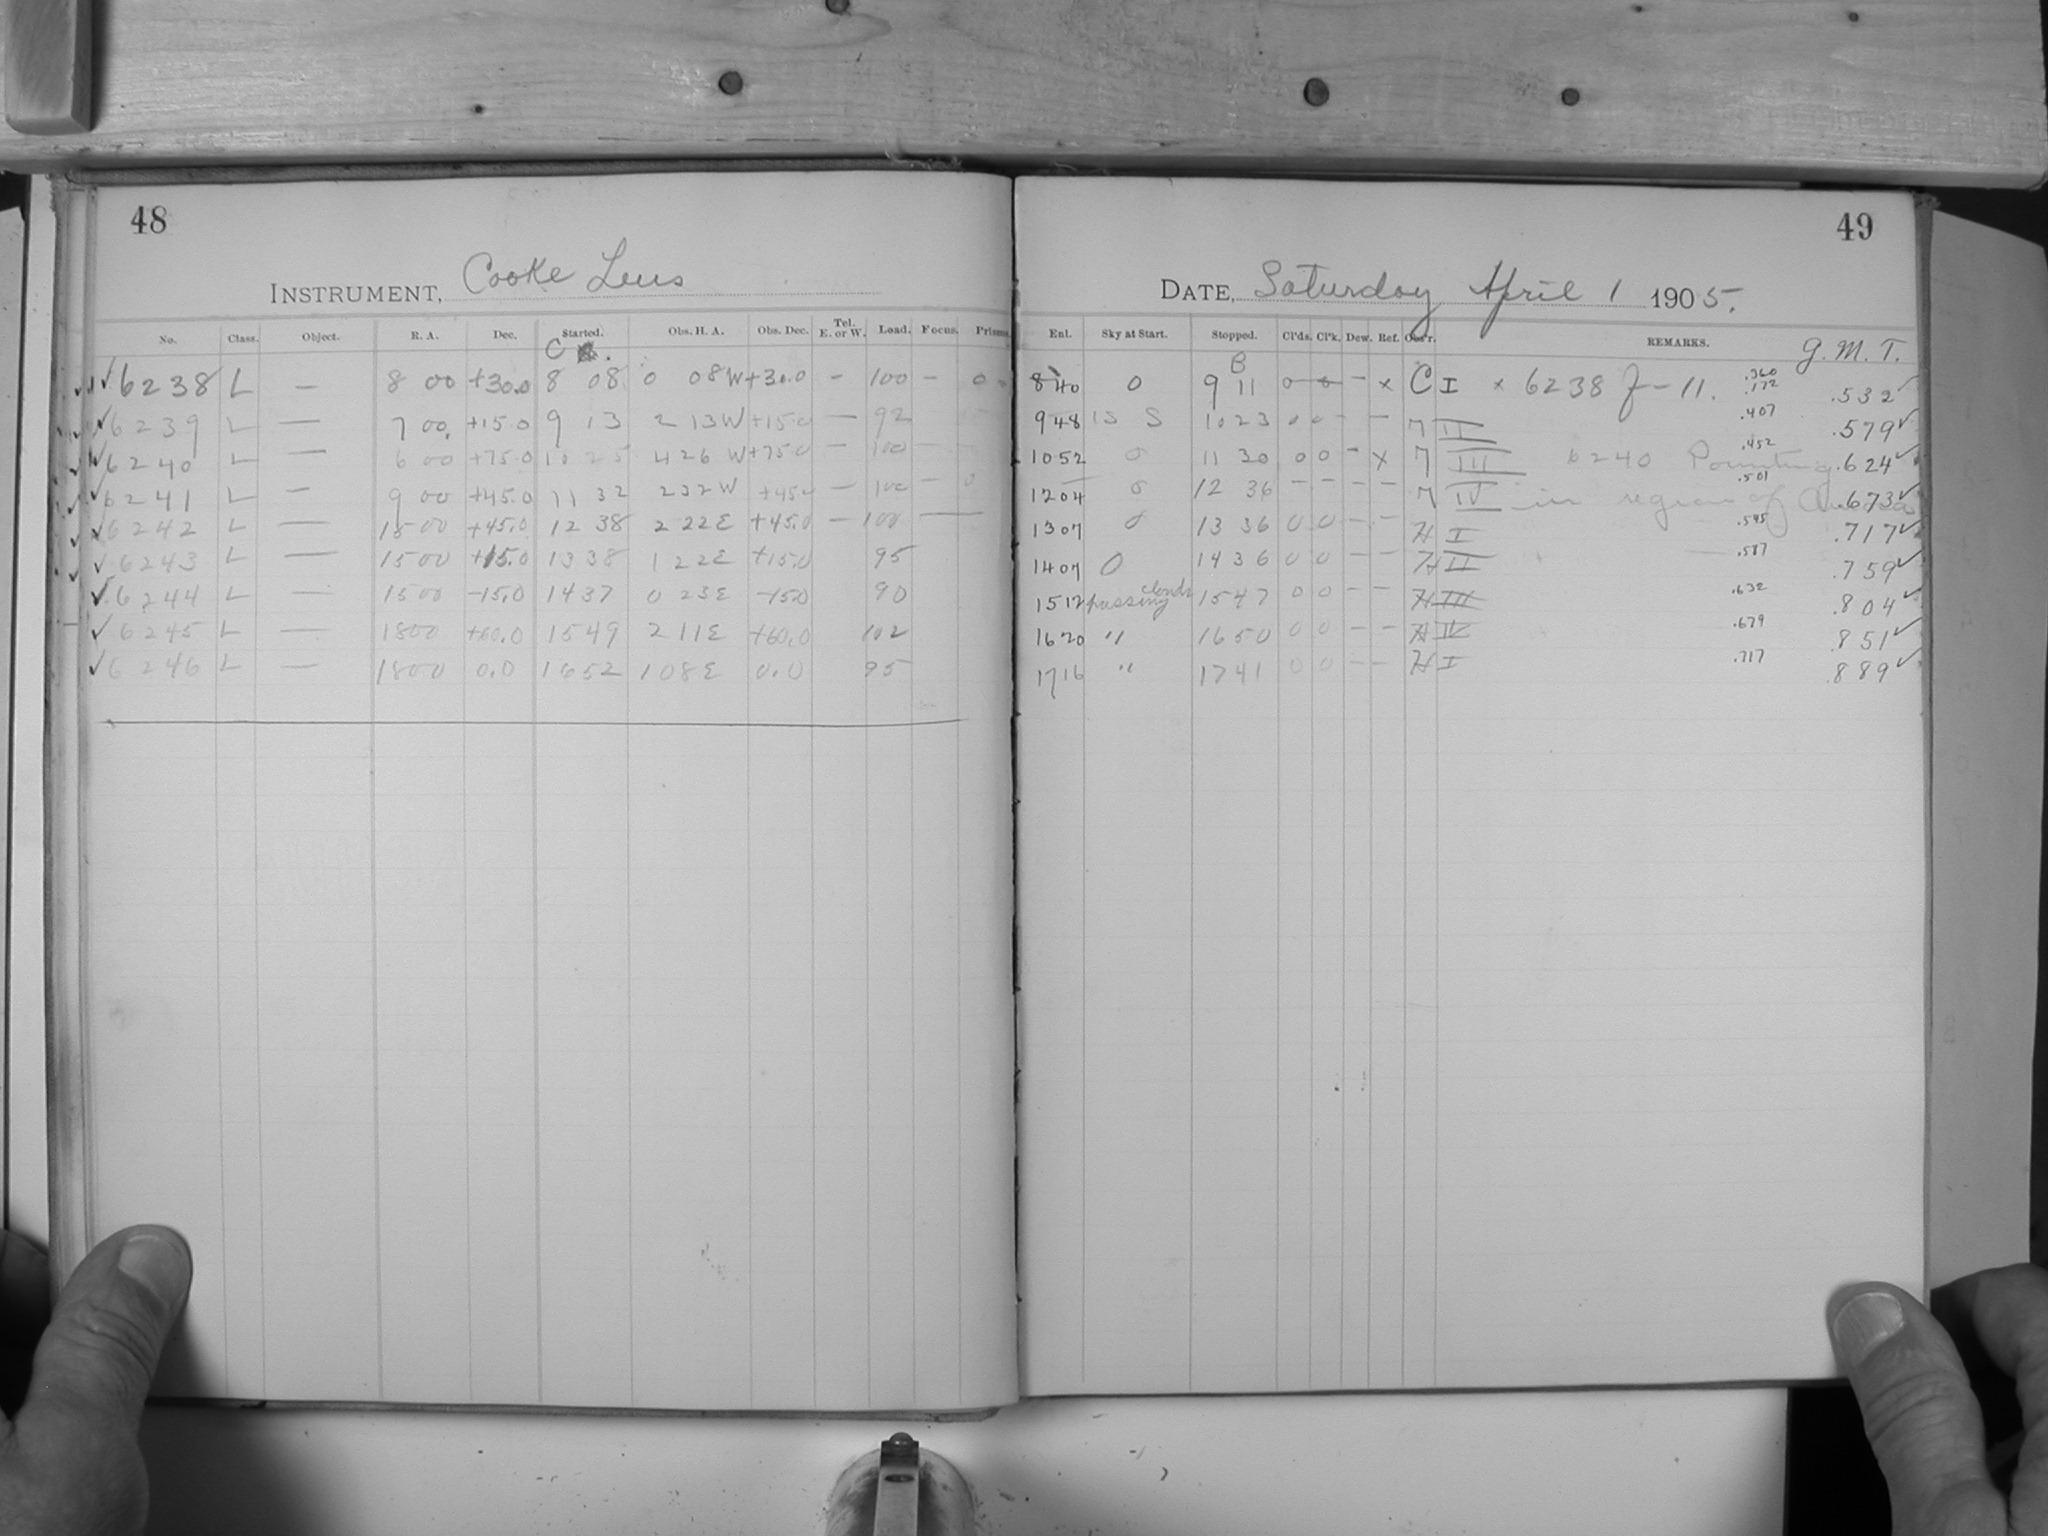 48
INSTRUMENT, Cooke Lens
No. Class. Object. R. A. Dec. Started. Obs. H. A. Obs. Dec. Tel. E. or W. Load. Focus. Prisms.
C
✓6238 L — 8 00 +30.0 8 08 0 08W +30.0 — 100 — 0
✓6239 L — 7 00 +15.0 9 13 2 13W +15.0 — 92
✓6240 L — 6 00 +75.0 10 25 4 26 W +75.0 — 100 —
✓6241 L — 9 00 +45.0 11 32 2 32W +45.0 — 100 — 0
✓6242 L — 1500 +45.0 12 38 2 22E +45.0 — 100 —
✓6243 L — 1500 +15.0 1338 1 22E +15.0 95
✓6244 L — 1500 -15.0 1437 0 23E -15.0 90
✓6245 L — 1800 +60.0 1549 2 11E +60.0 102
✓6246 L — 1800 0.0 1652 1 08E 0.0 95
49
DATE, Saturday April 1 1905.
Enl. Sky at Start. Stopped. Cl'ds. Cl'k. Dew. Ref. Obs'r. REMARKS. G. M. T.
B
8 40 0 9 11 0 0 - x C I x 6238 J-11. .360 .172 .532✓
9 48 IS S 10 23 0 0 - - II .407 .579✓
10 52 0 11 30 0 0 - x III 6240 Pointing .452 .624✓
12 04 0 12 36 - - - - IV in region of .501 .673✓
13 07 0 13 36 0 0 - - H I .545 .717✓
14 07 0 1436 0 0 - - H II .587 .759✓
15 12 passing clouds 1547 0 0 - - H III .632 .804✓
16 20 " 1650 0 0 - - H IV .679 .851✓
17 16 " 1741 0 0 - - H I .717 .889✓